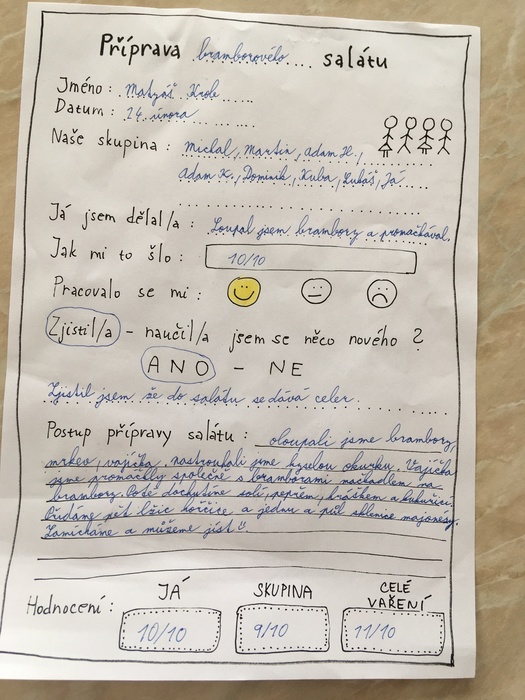 Příprava bramborového.... salátu
Jméno: Matyáš Krob......
Datum: 14. února.........
Naše skupina: Michal, Martin, Adam H.,
Adam K., Dominik, Kuba, Lukáš, Já
Já jsem dělal/a: Loupal jsem brambory a promačkával.
Jak mi to šlo: 10/10
Pracovalo se mi:
Zjistil/a - naučil/a jsem se něco nového?
ANO - NE
Zjistil jsem že do salátu se dává celer.
Postup přípravy salátu: oloupali jsme brambory,
mrkev, vajíčka, nastrouhali jsme kyselou okurku. Vajíčka
jsme promačkly společně s bramborami mačkadlem na
brambory. Poté dochutíme solí, pepřem, hráškem a kukuřicí.
Přidáme pět lžic hořčice a jednu a půl sklenice majonézy.
Zamícháme a můžeme jíst
Hodnocení: JÁ SKUPINA CELÉ VAŘENÍ
10/10 9/10 11/10